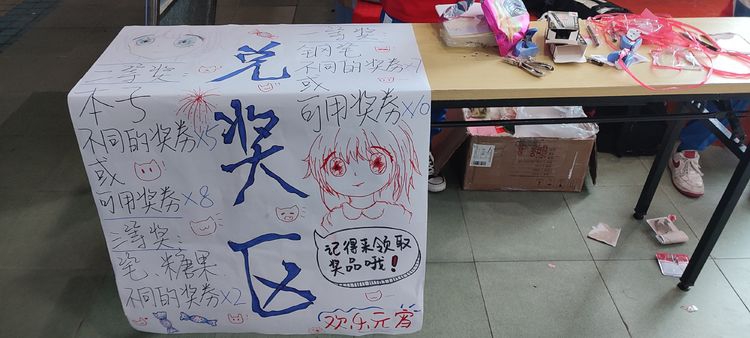 兑奖区
一等奖:
钢笔
不同的奖券×7
或
可用奖券×10
二等奖:
本子
不同的奖券×5
或
可用奖券×8
三等奖:
笔、糖果
不同的奖券×2
记得来领取
奖品哦!
欢乐元宵